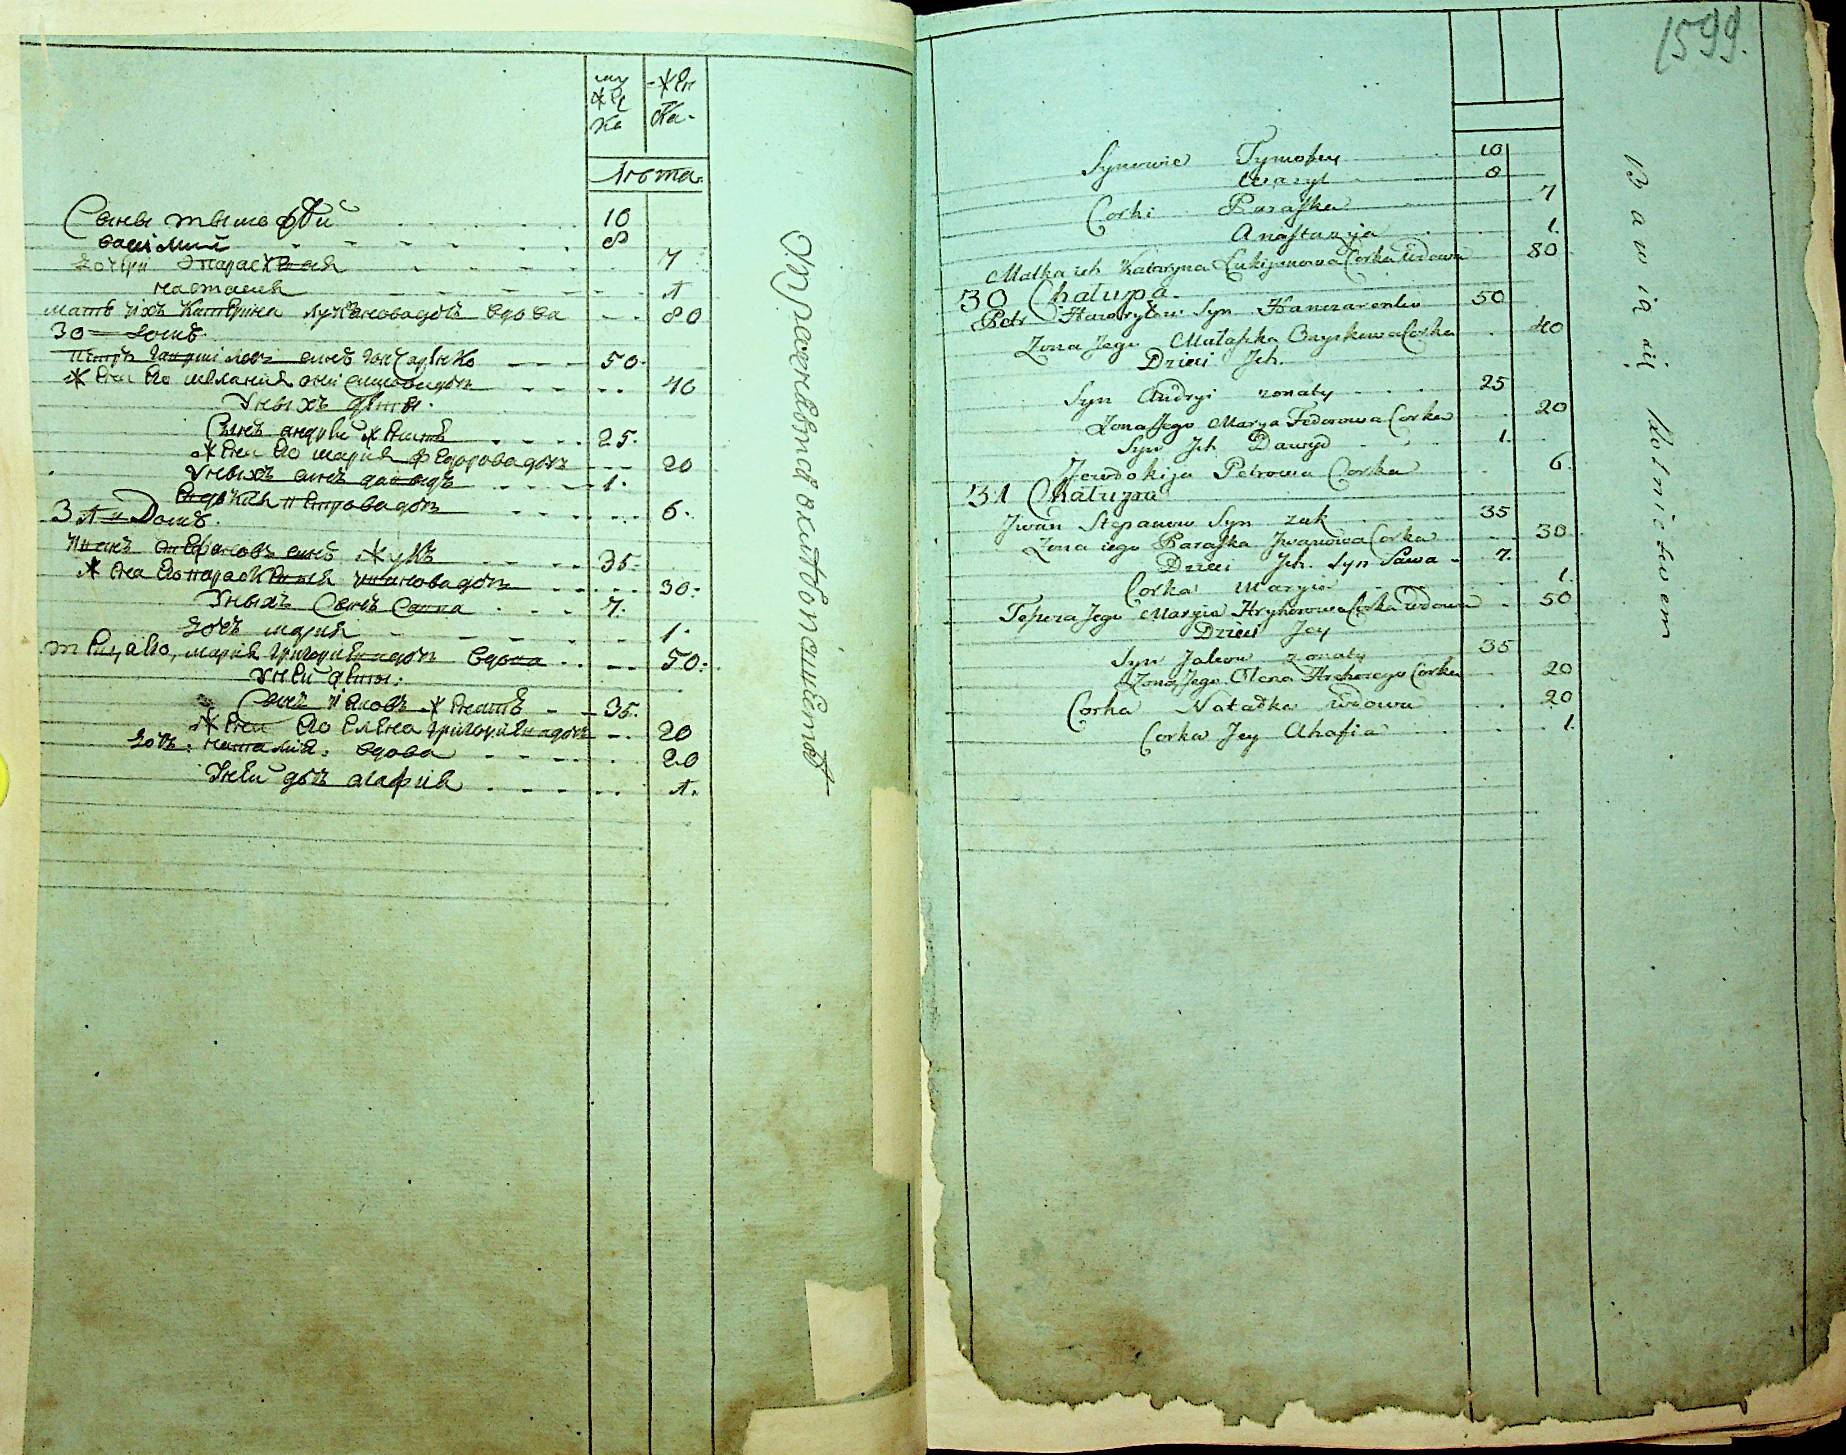 му
жес
ка
жен
ска.
Лѣта.
Сыны тымофѣй 10
василий 8
дочери Параскевія 7
настасия 1
мать ихъ Катерина лукянова дочь вдова 80
30 домъ.
петръ гавриловъ сынъ гончаренко 50.
жена его мелания онисимова дочь 40
У ныхъ дѣти.
Сынъ андрей женатъ 25.
жена его мария федорова дочь 20
У ныхъ сынъ давидъ 1.
евдокия петрова дочь 6.
31 Домъ.
иванъ стефановъ сынъ жукъ 35.
жена его параскевия иванова дочь 30.
У ныхъ Сынъ Савва 7.
дочь мария 1.
теща его, мария григориева дочь вдова 50.
У ней дѣти.
Сынъ Яковъ женатъ 35.
жена его Елена григориева дочь 20
дочь наталия вдова 20
У ней дочь агафия 1.
упражняются хлѣбопашествомъ
1599.
Synowie Tymofey 10
Wasyl 8
Corki Paraska 7
Anastazyia 1.
Matka ich Kataryna Łukijanowa Corka wdowa 80
30 Chałupa.
Petr Hawryłow Syn Hanczarenko 50
Zona Jego Małaszka Onyskowa Corka 40
Dzieci Jch.
Syn Andryi zonaty 25
Zona Jego Marya Fedorowa Corka 20
Syn Jch Dawyd 1.
Jewdokija Petrowa Corka 6.
31 Chałupa
Jwan Stepanow Syn zuk 35
Zona iego Paraska Jwanowa Corka 30
Dzieci Jch. Syn Sawa 7.
Corka Maryia 1.
Teszcza Jego Maryia Hryhorowa Corka wdowa 50
Dzieci Jey
Syn Jakow zonaty 35
Zona Jego Olena Hryhorego Corka 20
Corka Natałka wdowa 20
Corka Jey Ahafia 1.
Bawią się Rolnictwem